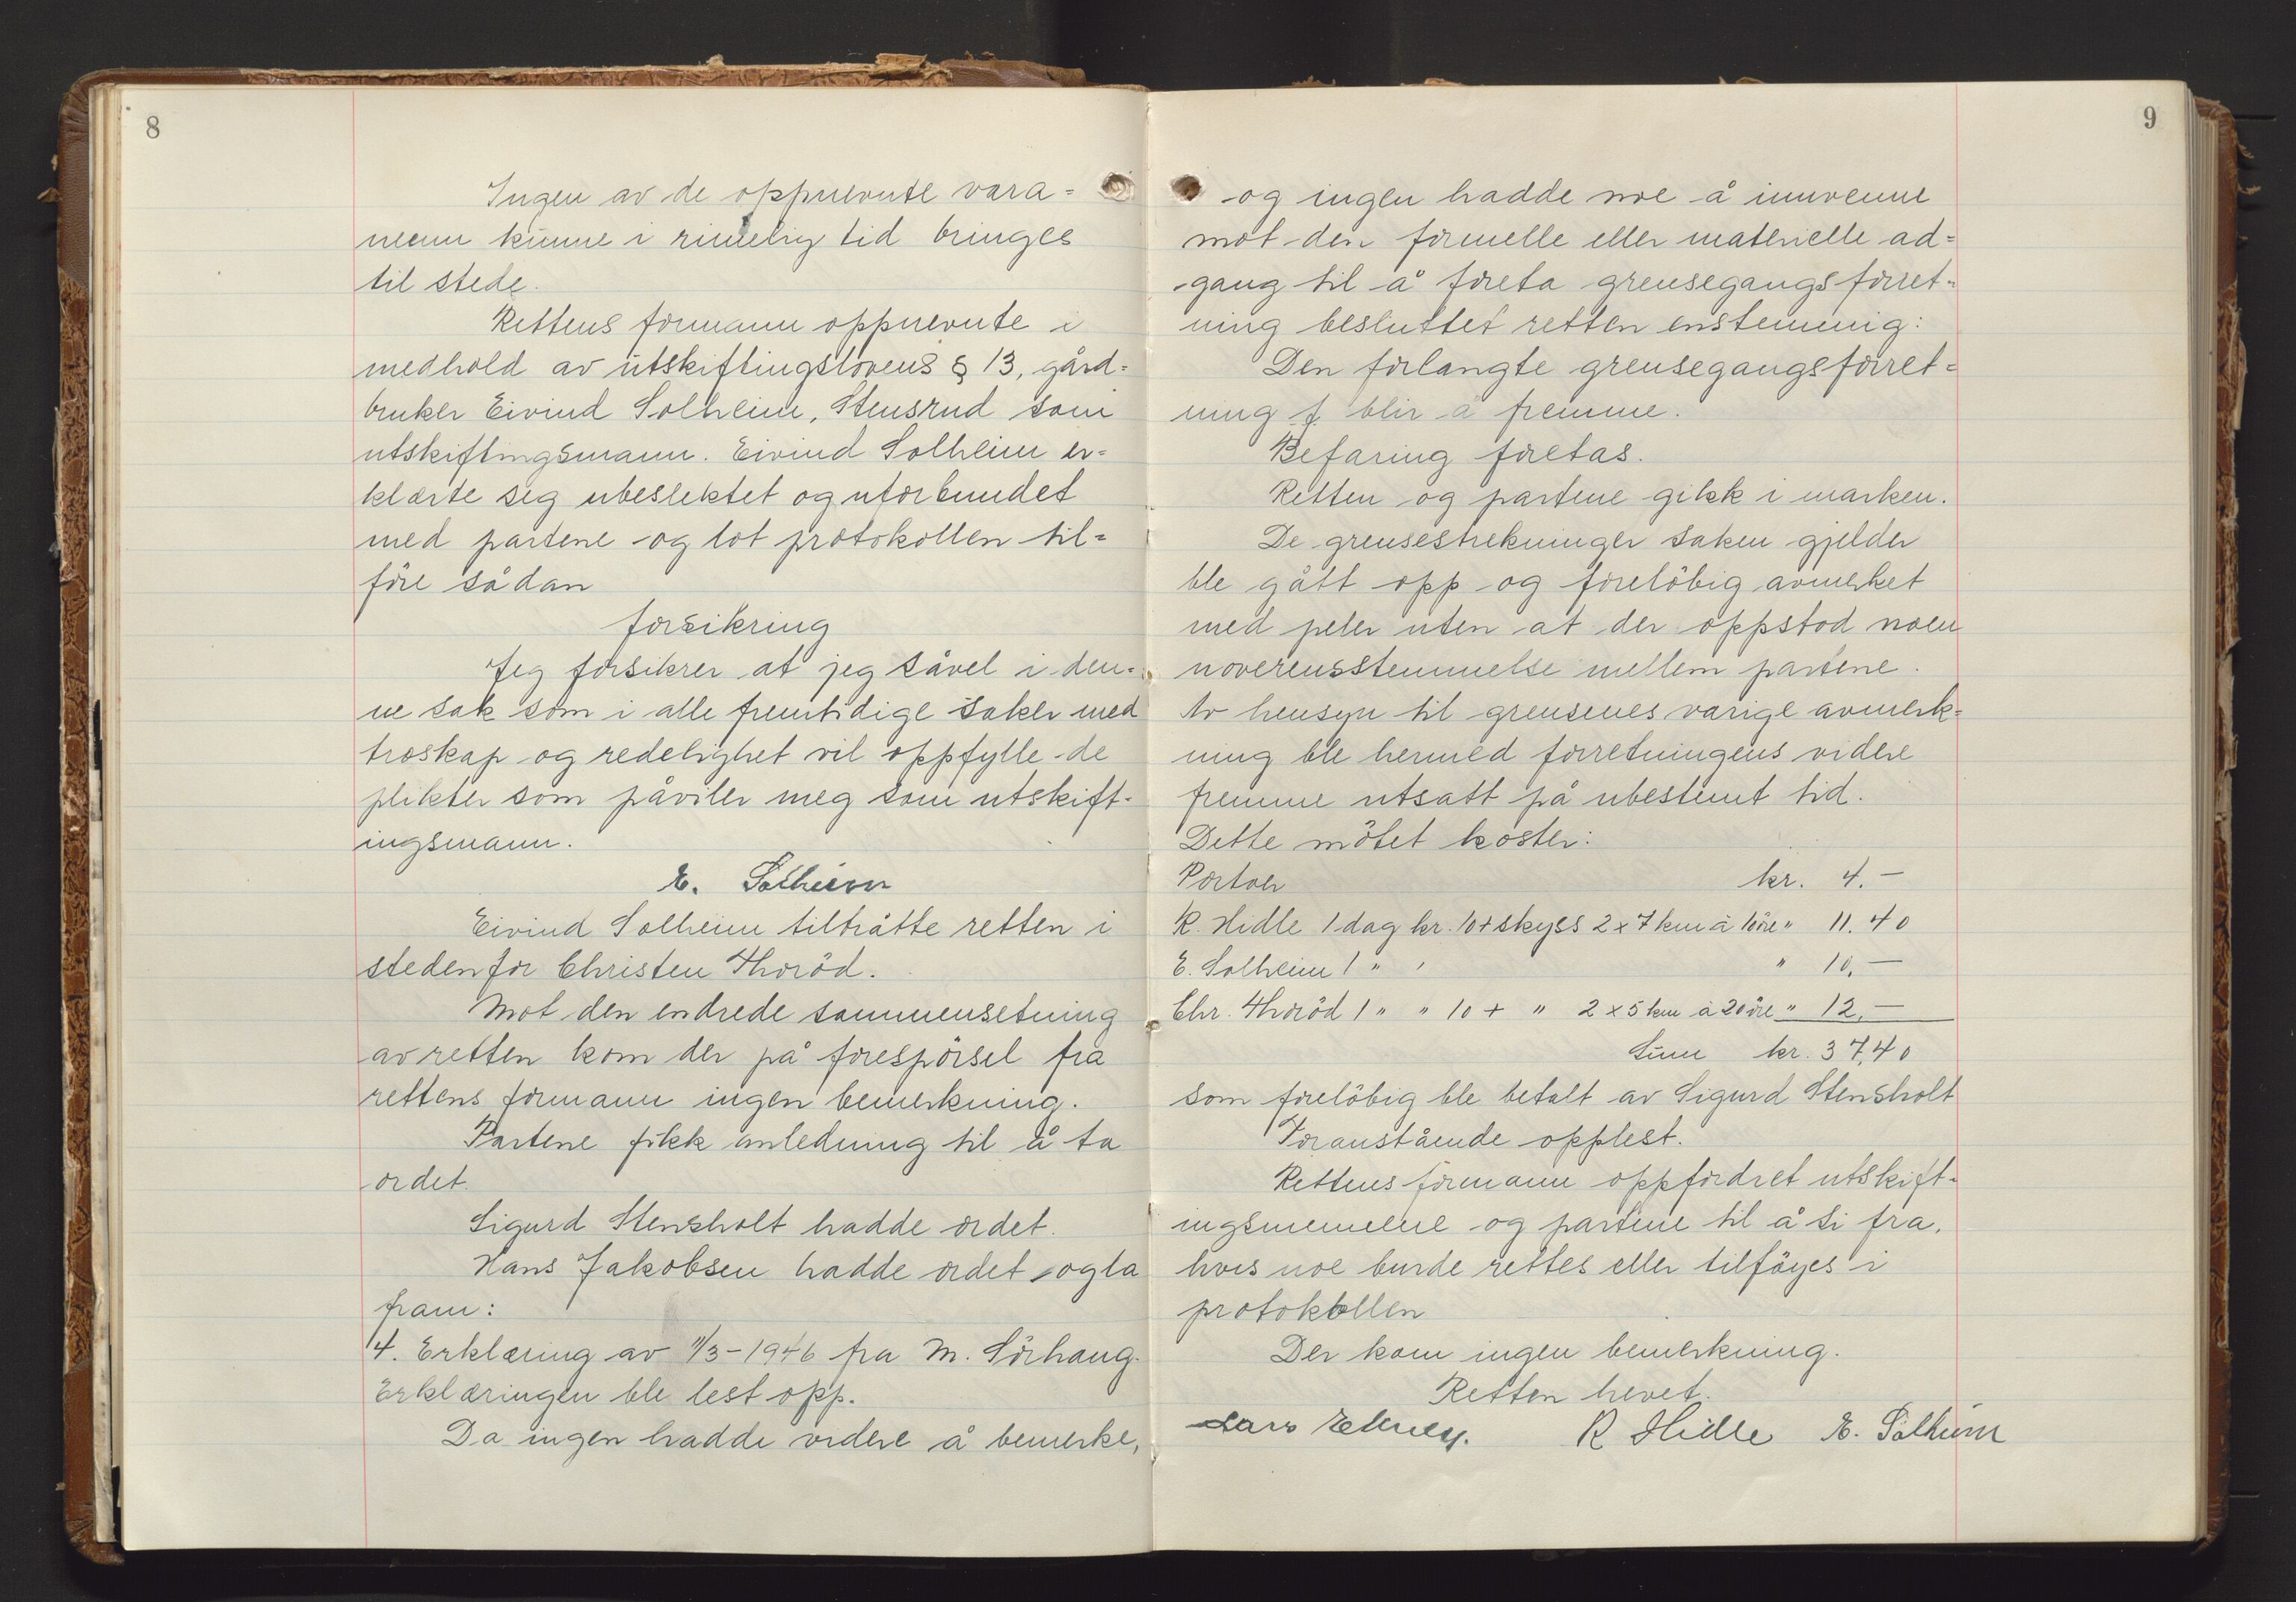 8
Ingen av de oppnevnte vara=
menn kunne i rimelig tid bringes
til stede.
Rettens formann oppnevnte i
medhold av utskiftingslovens § 13, gård=
bruker Eivind Solheim, Stensrud som
utskiftingsmann. Eivind Solheim er=
klærte seg ubeslektet og uforbundet
med partene og lot protokollen til=
føre sådan
forsikring
Jeg forsikrer at jeg såvel i den=
ne sak som i alle fremtidige saker med
troskap og redelighet vil oppfylle de
plikter som påviler meg som utskift-
ingsmann.
E. Solheim
Eivind Solheim tiltråtte retten i
stedenfor Christen Thoröd.
Mot den endrede sammensetning
av retten kom der på forespörsel fra
rettens formann ingen bemerkning.
Partene fikk anledning til å ta
ordet.
Sigurd Stensholt hadde ordet.
Hans Jakobsen hadde ordet og la
fram:
4. Erklæring av 11/3-1946 fra M. Sörhaug.
Erklæringen ble lest opp.
Da ingen hadde videre å bemerke,
9
og ingen hadde noe å innvenne
mot den formelle eller materielle ad=
gang til å foreta grensegangsforret=
ning besluttet retten enstemmig:
Den forlangte grensegangsforret=
ning blir å fremme.
Befaring foretas.
Retten og partene gikk i marken.
De grensestrekninger saken gjelder
ble gått opp og foreløbig avmerket
med peler uten at der oppstod noen
uoverensstemmelse mellem partene.
Av hensyn til grensenes varige avmerk=
ning ble hermed forretningens videre
fremme utsatt på ubestemt tid.
Dette mötet koster:
Portoer kr. 4.-
R. Hidle 1 dag kr. 10 + skyss 2 x 7 km à 10 öre " 11.40
E. Solheim 1 " " " 10,-
Chr. Thoröd 1 " " 10 + " 2 x 5 km à 20 öre " 12,-
Sum kr. 37,40
som forelöbig ble betalt av Sigurd Stensholt
Foranstående opplest.
Rettens formann oppfordret utskift-
ingsmennene og partene til å si fra,
hvis noe burde rettes eller tilföyes i
protokollen
Der kom ingen bemerkning.
Retten hevet.
Lars R Hidle E. Solheim